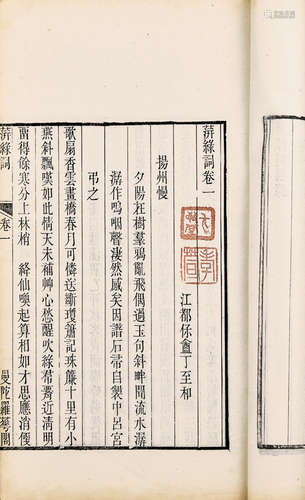 萍綠詞卷一
江都保盦丁至和
揚州慢
夕陽在樹羣鴉亂飛偶過玉句斜畔聞流水潺
潺作嗚咽聲淒然感矣因譜石帚自製中呂宮
弔之
歌扇香雲畫橋春月可憐送斷瓊簫記珠簾十里有小
燕斜飄嘆如此情天未補艸心愁醒吹綠蕪帬近清明
留得餘寒分上林梢 絳仙喚起算相如才思應消僾
萍綠詞
卷一
曼陀羅華閣